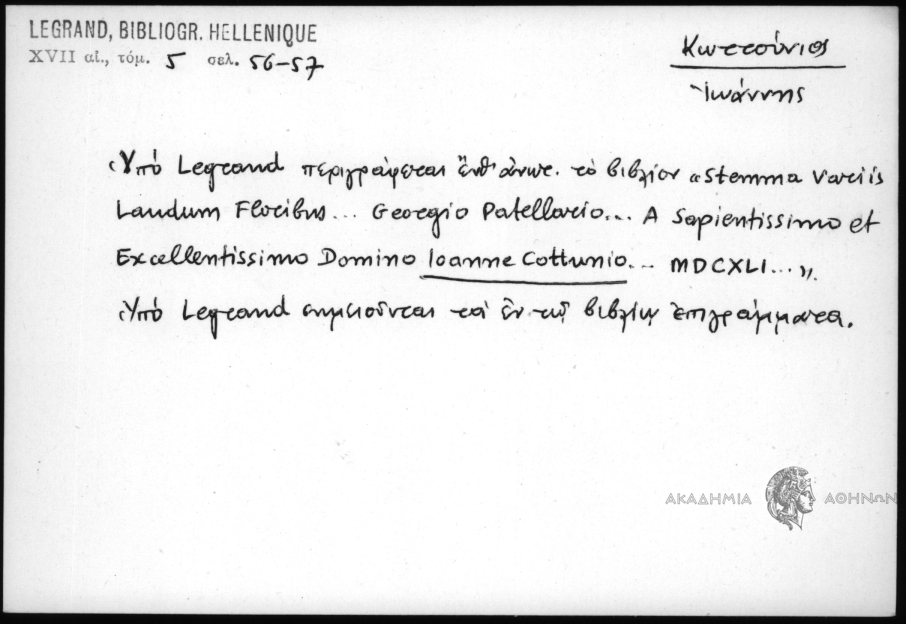 LEGRAND, BIBLIOGR. HELLENIQUE
XVII αἰ., τόμ. 5 σελ. 56-57
Κωττούνιος
Ἰωάννης
Ὑπό Legrand περιγράφεται ἔνθ' ἀνωτ. τό βιβλίον «Stemma Variis
Laudum Floribus... Georgio Patellario... A Sapientissimo et
Excellentissimo Domino Ioanne Cottunio... MDCXLI...».
Ὑπό Legrand σημειοῦνται τά ἐν τῷ βιβλίῳ ἐπιγράμματα.
ΑΚΑΔΗΜΙΑ ΑΘΗΝΩΝ